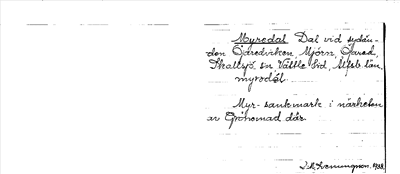 Myredal Dal vid sydän-
den Öjaredviken Mjörn, Öjared,
Skallsjö sn Vättle hd, Älfsb län.
myrodal
Myr- sankmark i närheten
av Grönomad där.
1938